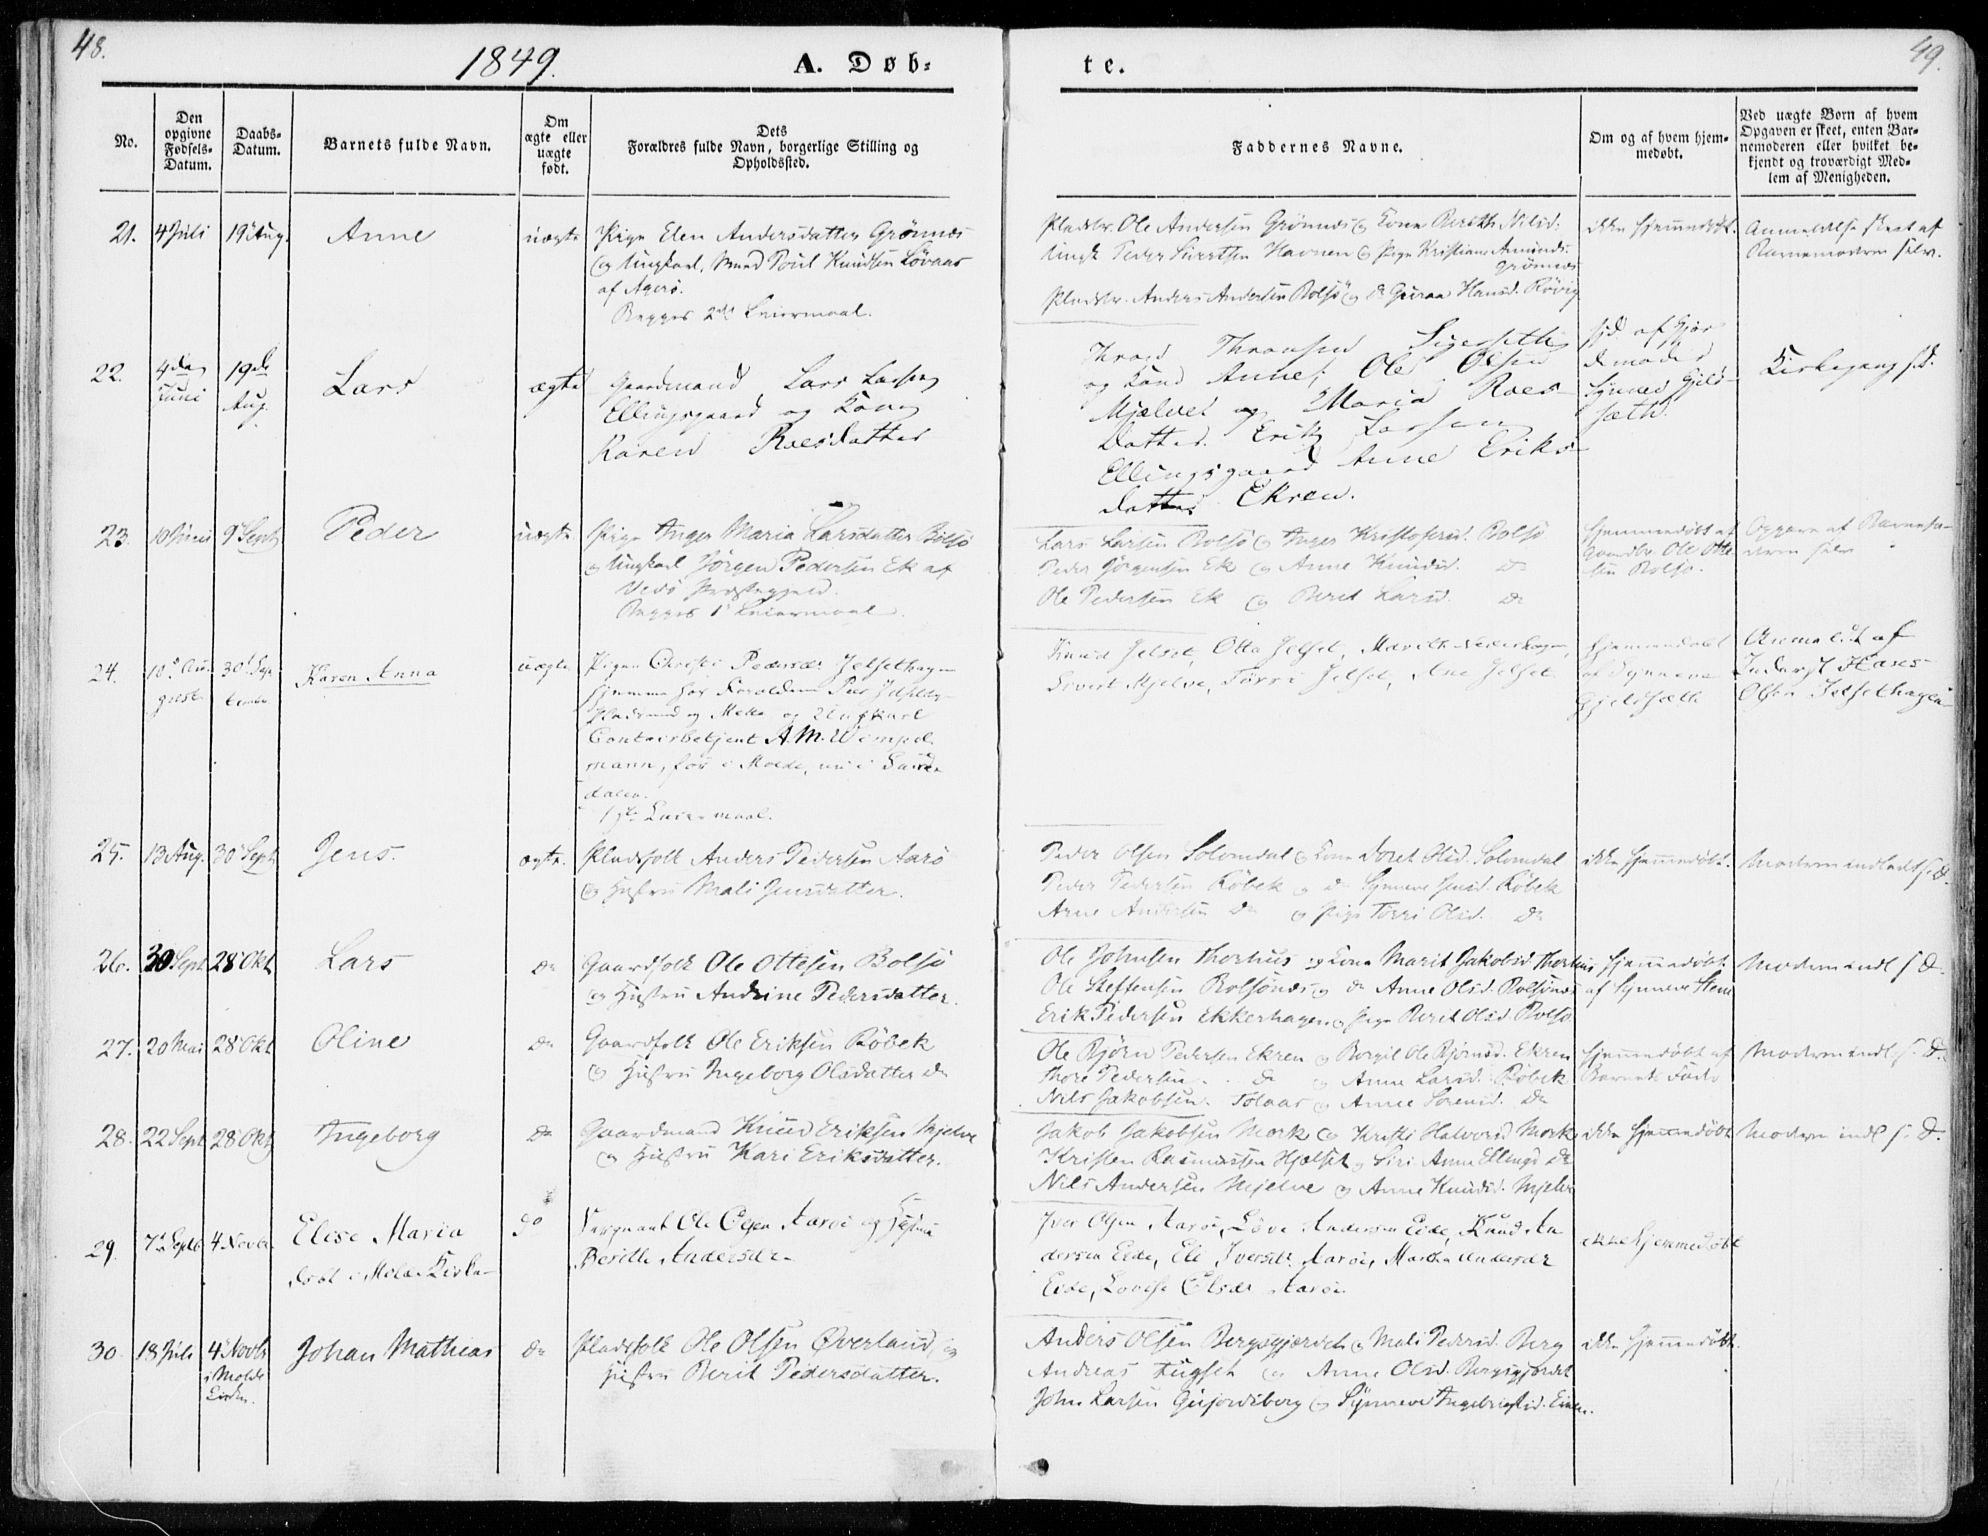 48.
1849.
A. Døb-
te.
49.
No.
Den opgivne Fødsels-Datum.
Daabs-Datum.
Barnets fulde Navn.
Om ægte eller uægte født.
Dets Forældres fulde Navn, borgerlige Stilling og Opholdssted.
Faddernes Navne.
Om og af hvem hjem-medøbt.
Ved uægte Børn af hvem Opgaven er skeet, enten Bar-nemoderen eller hvilket be-kjendt og troværdigt Med-lem af Menigheden.
21. 4 Juli 19 Aug. Anne uægte Pige Elen Andersdatter Grønnes
og Ungkarl, Poul Knudsen Løvaas
af Agerø.
Begges 2det Leiermaal.
Pladsbr. Ole Andersen Grønnes og Kone Bereth Nilsd.
Ungk Peder Sivertsen Havnen og Pige Kristiane Amunds.
Grønnes
Pladsbr. Anders Andersen Bolsø og Guraa Hansd. Røvig
ikke hjemmedøbt.
Anmeldelse skeet af
Barnemoderen selv.
22. 4de Juni 19de Aug. Lars ægte Gaardmand Lars Larsen
Ellingsgaard og Kone
Karen Roesdatter
Thronsen
og Anne, Ole Olsen
Mjelvet og Maria Roes-
datter. Erik Larsen
Ellingsgaard Anne Eriks-
datter Ekren.
hjd. af Gjor-
demoder
Synnev Gjels-
sæth.
Kirkegang
23. 10 Juni 9 Sept Peder uægte Pige Inger Maria Larsdatter Bolsø
og Ungkarl Jørgen Pedersen Ek af
Vedø Præstegjeld.
Begges 1 Leiermaal.
Lars Larsen Bolsø og Inger Kristofersd. Bolsø
Peder Jørgensen Ek og Anne Knudsd. do
Ole Pedersen Ek og Berit Larsd. do
Hjemmedøbt af
Gaardbr. Ole Otte-
sen Bolsø.
Opgave af Barnemo-
deren selv
24. 10de Au-
gust 30te Sep-
tember Karen Anna uægte Pigen Pedersdr Jelsethagen
hjemme hos Forældrene Peer
og Mette og Ungkarl
Contoirbetjent A. M. Wimpel-
mann, før i Molde, nu i
dalen.
1ste Leiermaal.
Knud Jelset, Otto Jelset,
Sivert Mjelve, Jelset, Ane Jelset
Hjemmedøbt
af Synneve
Gjelsæth
Anmeldt af
Inderst Hans
Olsen Jelsethagen
25. 13 Aug. 30 Sept Jens. ægte. Pladsfolk Anders Pedersen Aarø
og Hustru Mali Jensdatter.
Peder Olsen Solomdal og Kone Doret Olsd. Solomdal
Peder Pedersen Røbek og do Synneve Jensd. Røbek
Arne Andersen do og Pige Olsd. do
ikke hjemmedøbt.
Moderen indledt s. D.
26. 30 Sept 28 Okt Lars do Gaardfolk Ole Ottesen Bolsø
og Hustru Andrine Pedersdatter.
Ole Johnsen Thorhus og Kone Marit Jakobsd. Thorhus
Ole Steffensen Bolsønes og do Anne Olsd. Bolsønes
Erik Pedersen Ekkerhagen og Pige Berit Olsd. Bolsø
hjemmedøbt
af Synneve Stene
Moderen indl s. D.
27. 20 Mai 28 Okt Oline do Gaardfolk Ole Eriksen Røbek
og Hustru Ingeborg Olsdatter do
Ole Bjørn Pedersen Ekren og Borgil Ole Bjørnsd. Ekren
Thore Pedersen do og Anne Larsd. Røbek
Nils Jakobsen Tolaas og Anne Sørensd. do
hjemmedøbt af
Barnets Fader
Moderen indl. s. D.
28. 22 Sept 28 Okt Ingeborg do Gaardmand Knud Eriksen Mjelve
og Hustru Kari Eriksdatter.
Jakob Jakobsen Mork og Kristi Halvorsd. Mork
Kristen Rasmussen Hjelset og Siri Anne Ellingsd do
Nils Andersen Mjelve og Anne Knudsd. Mjelve
ikke hjemmedøbt
Moderen indl s. D.
29. 7de Septb 4 Novbr Elise Maria
døbt i Molde Kirke do Ole Olsen Aarøe og Hustru
Berithe Andersdr
Iver Olsen Aarøe, Andersen Eide, Knud An-
dersen Eide, Eli Iversdr Aarøe, Martha Andersdr
Eide, Lovise Olsdr Aarøe
ikke hjemmedøbt
30. 18 Juli 4 Novbr
i Molde
Kirke. Johan Mathias do Pladsfolk Ole Olsen Øverland og
Hustru Berit Pedersdatter.
Anders Olsen Bergsgjærdet og Mali Pedersd. Berg
Andreas og Anne Olsd. Bergsgjerdet
John Larsen og Synneve
ikke hjemmedøbt.